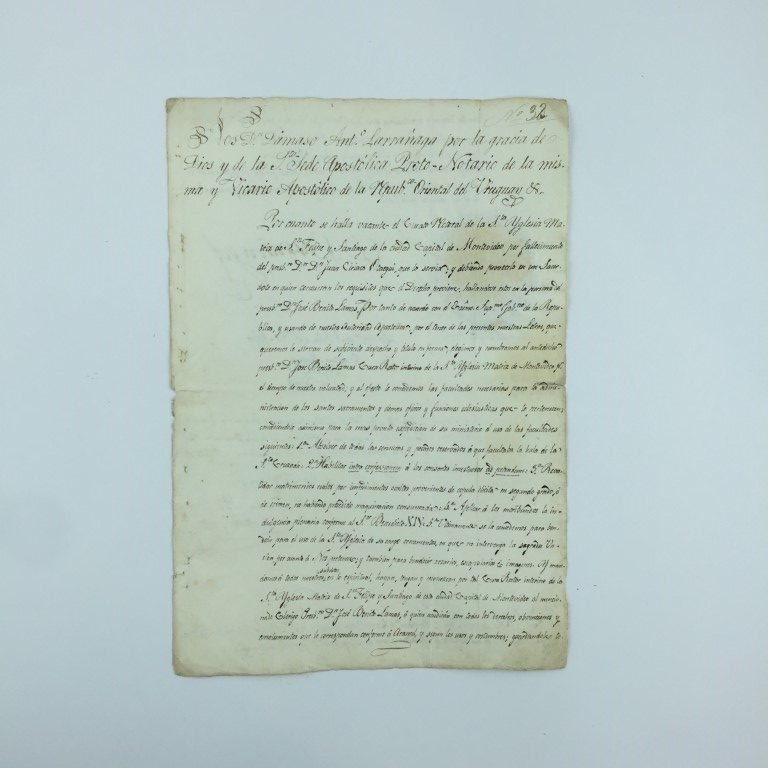 Nº 32
Nos Dn. Dámaso Antº Larrañaga por la gracia de
Dios y de la Sta. Sede Apostólica Proto-Notario de la mis-
ma y Vicario Apostólico de la Repubca. Oriental del Uruguay &.
Por cuanto se halla vacante el Curato Rectoral de la Sta. Yglesia Ma-
triz de Sn. Felipe y Santiago de la ciudad Capital de Montevideo por fallecimiento
del presbº Dor. Dn. Juan Ciriaco Otaegui, que lo servia, y debiendo proveerla en un Sacer-
dote en quien concurran los requisitos que el Derecho previene, hallandose estos en la persona del
presbº Dn. José Benito Lamas. Por tanto de acuerdo con el Exmo. Supmo. Gobno. de la Repu-
blica, y usando de nuestra autoridad Apostolica, por el tenor de las presentes nuestras Letras, que
queremos le sirvan de suficiente despacho y titulo en forma, elegimos y nombramos al antedicho
presbº Dn. José Benito Lamas Cura Rector interino de la Sta. Yglesia Matriz de Montevideo pr.
el tiempo de nuestra voluntad; y al efecto le conferimos las facultades necesarias para la admi-
nistracion de los santos sacramentos y demas oficios y funciones eclesiasticas que le pertenecen;
concediendole asimismo para la mas pronta expedicion de su ministerio el uso de las facultades
siguientes: 1ª Absolver de todas las censuras y pecados reservados á que facultaba la bula de la
Sta. Cruzada. 2ª Habilitar intra confessionem á los consortes incestuosos ad petendum. 3ª Reva-
lidar matrimonios nulos por impedimentos ocultos provenientes de copula ilicita en segundo grado, ó
de crimen, no habiendo precedido maquinacion consumada. 4ª Aplicar á los moribundos la in-
dulgencia plenaria conforme al Sr. Benedicto XIV. 5ª Ultimamente se la concedemos para ben-
decir para el uso de la Sta. Yglesia de su cargo ornamentos, en que no intervenga la sagrada Un-
cion por cuanto á Nos pertenece; y tambien para bendecir rosarios, escapularios é imagenes. Y man-
damos á todos nuestros subditos en lo espiritual, hayan, tengan y reconozcan por tal Cura Rector interino de la
Sta. Yglesia Matriz de Sn. Felipe y Santiago de esta ciudad Capital de Montevideo al mencio-
nado Clerigo Presbº Dn. José Benito Lamas, á quien acudirán con todos los derechos, obvenciones y
emolumentos que le correspondan conforme á Arancel, y segun los usos y costumbres; guardandole